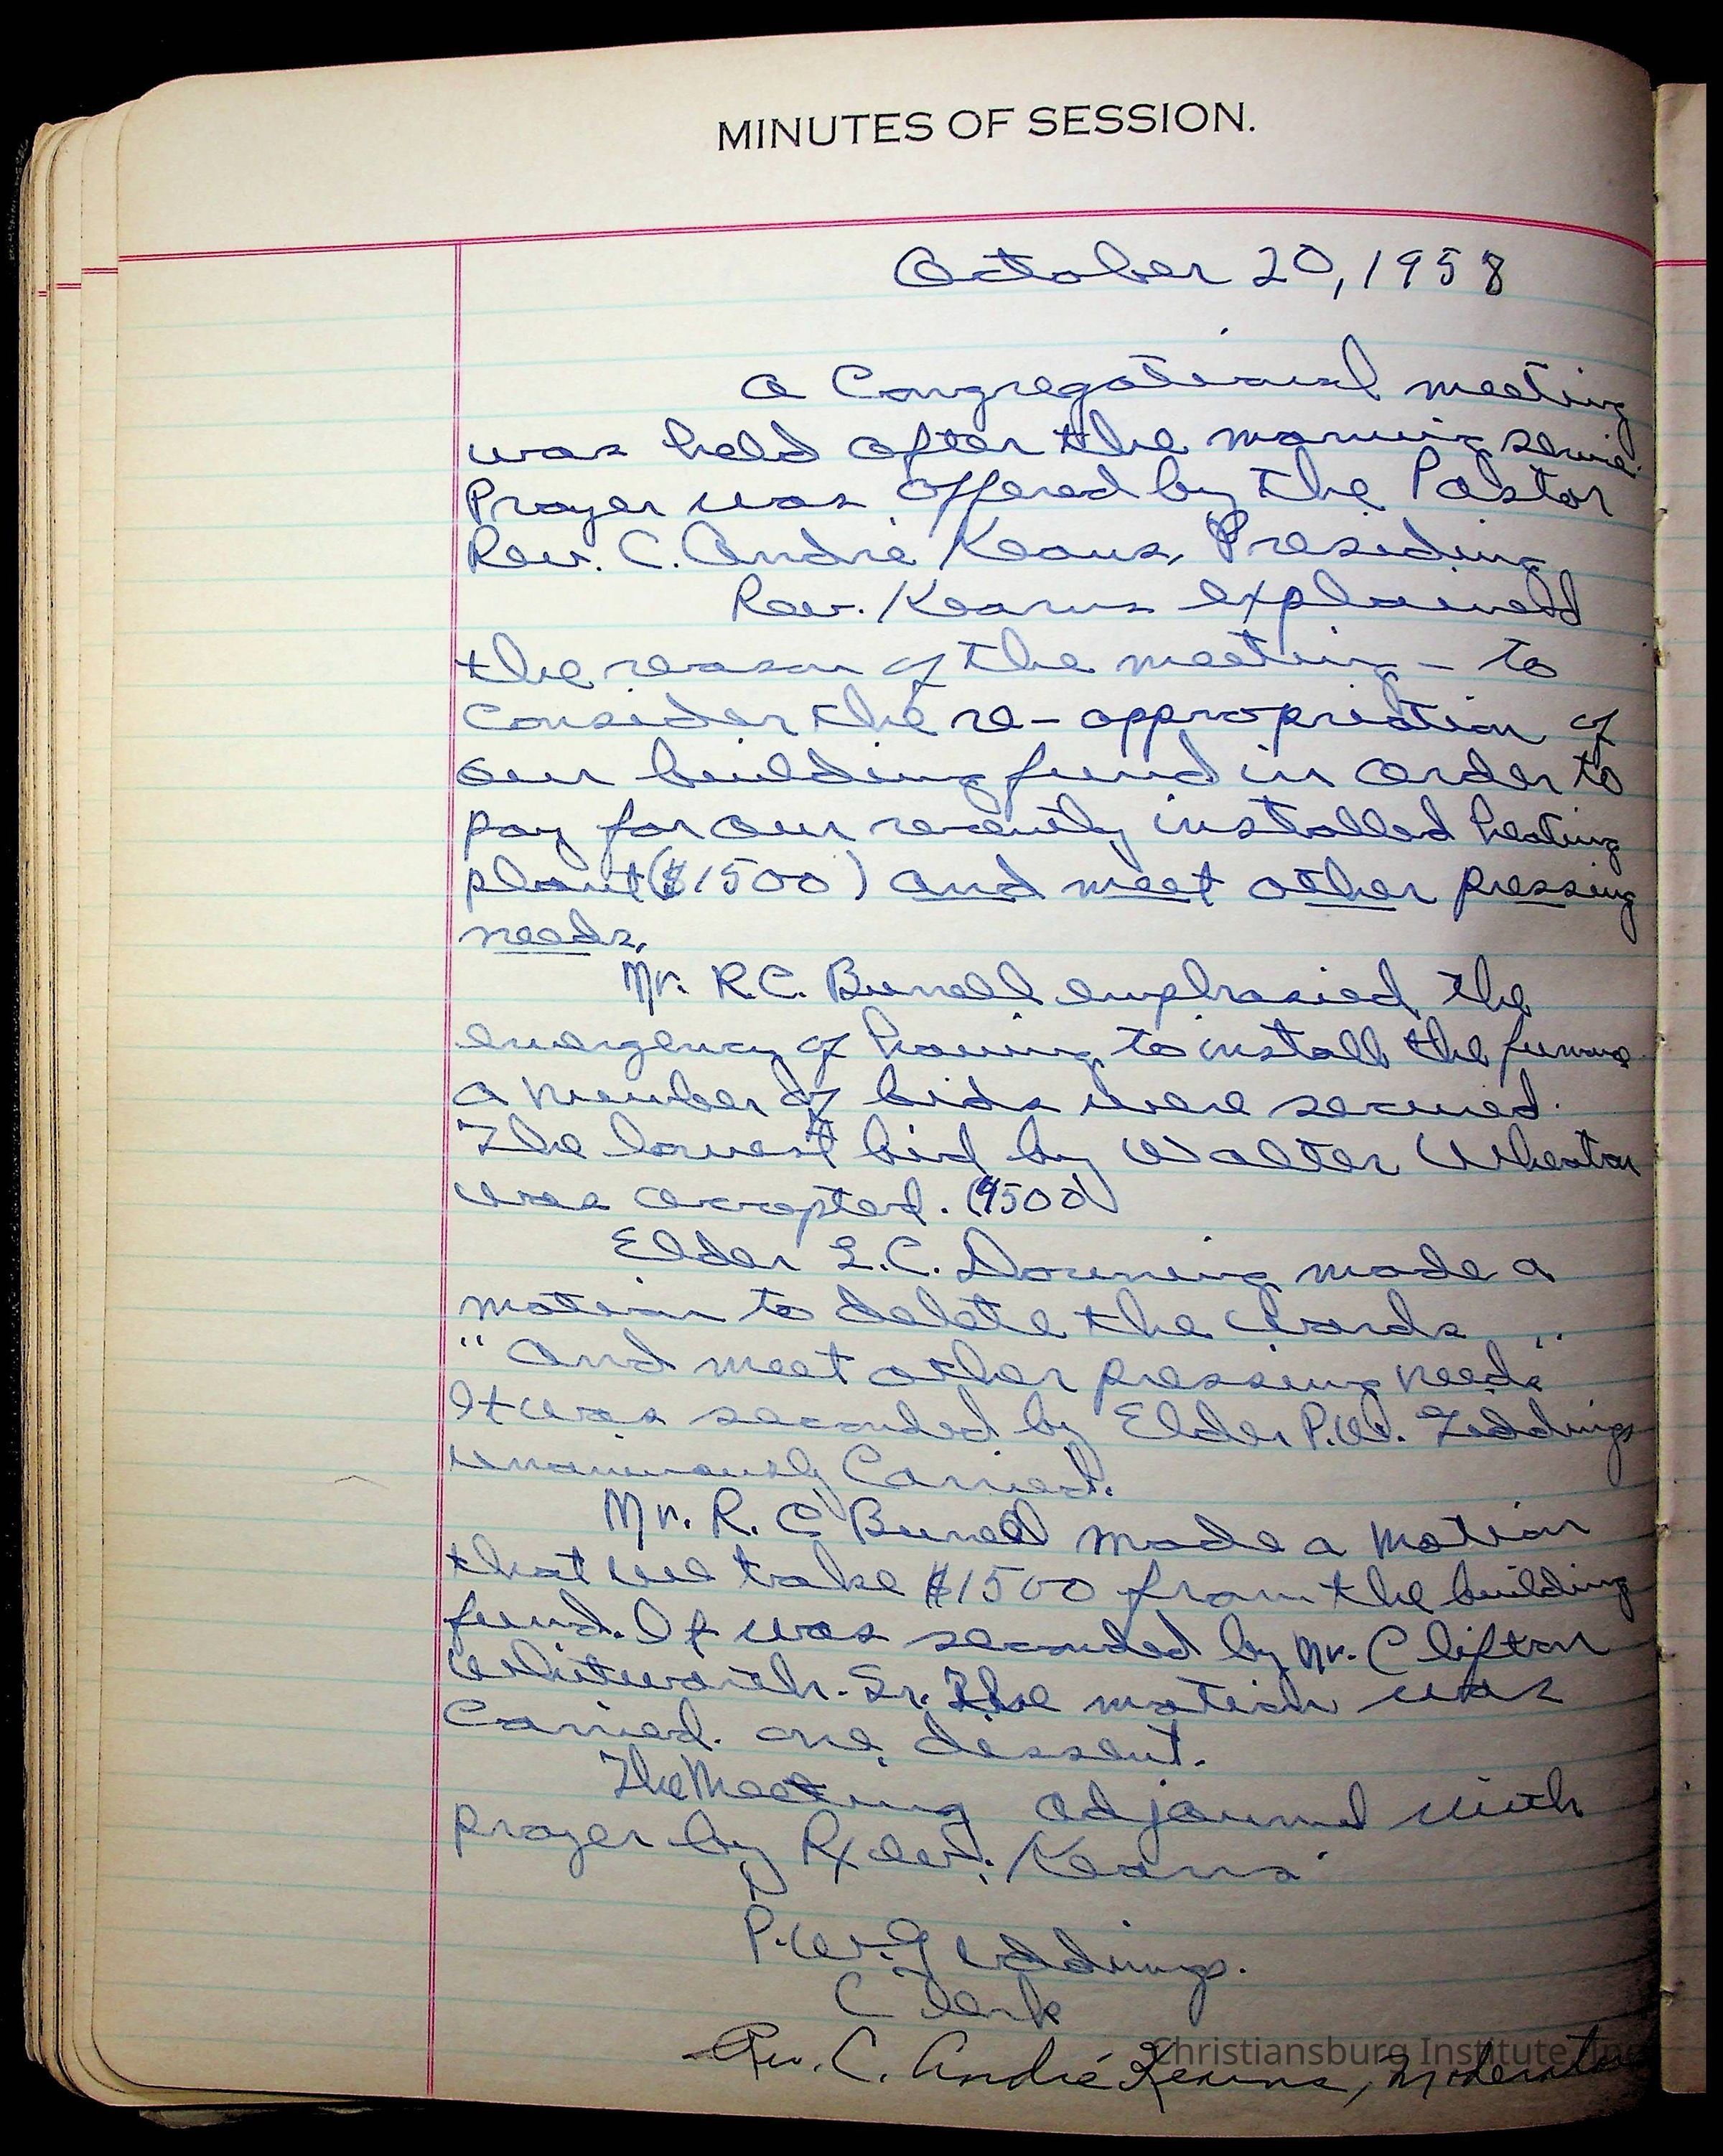 MINUTES OF SESSION.
October 20, 1958
A Congregational meeting
was held after the morning service.
Prayer was offered by the Pastor
Rev. C. André Kearns, Presiding
Rev. Kearns explained
the reason of the meeting – to
consider the re-appropriation of
our building fund in order to
pay for our recently installed heating
plant ($1500) and meet other pressing
needs.
Mr. R.C. Burrell emphasied the
emergency of having to install the furnace.
A number of bids were secured.
The lowest bid by Walter Wheaton
was accepted. (1500)
Elder L.C. Downing made a
motion to delete the words
"and meet other pressing needs"
It was seconded by Elder P.W. Giddings
Unanimously Carried.
Mr. R. C. Burrell made a motion
that we take $1500 from the building
fund. It was seconded by Mr. Clifton
Whitworth. Sr. The motion was
Carried. one dissent.
The Meeting adjourned with
prayer by Rev. Kearns
P.W. Giddings.
Clerk
Rev. C. André Kearns, Moderator
Christiansburg Institute, Inc